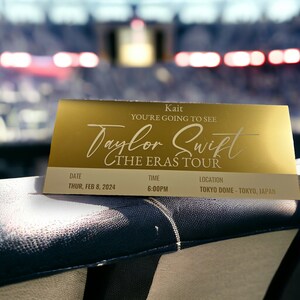 Kait
YOU'RE GOING TO SEE
Taylor Swift
THE ERAS TOUR
DATE TIME LOCATION
THUR, FEB 8, 2024 6:00PM TOKYO DOME - TOKYO, JAPAN